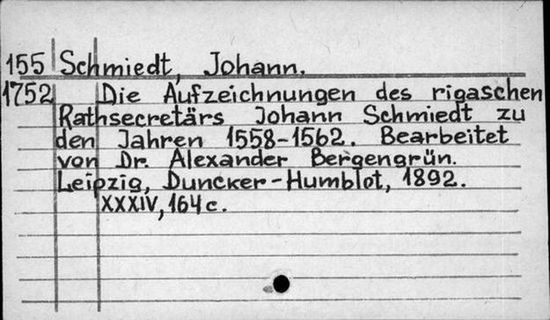 155 Schmiedt, Johann.
1752 Die Aufzeichnungen des rigaschen
Rathsecretärs Johann Schmiedt zu
den Jahren 1558-1562. Bearbeitet
von Dr. Alexander Bergengrün.
Leipzig, Duncker-Humblot, 1892.
XXXIV, 164 c.